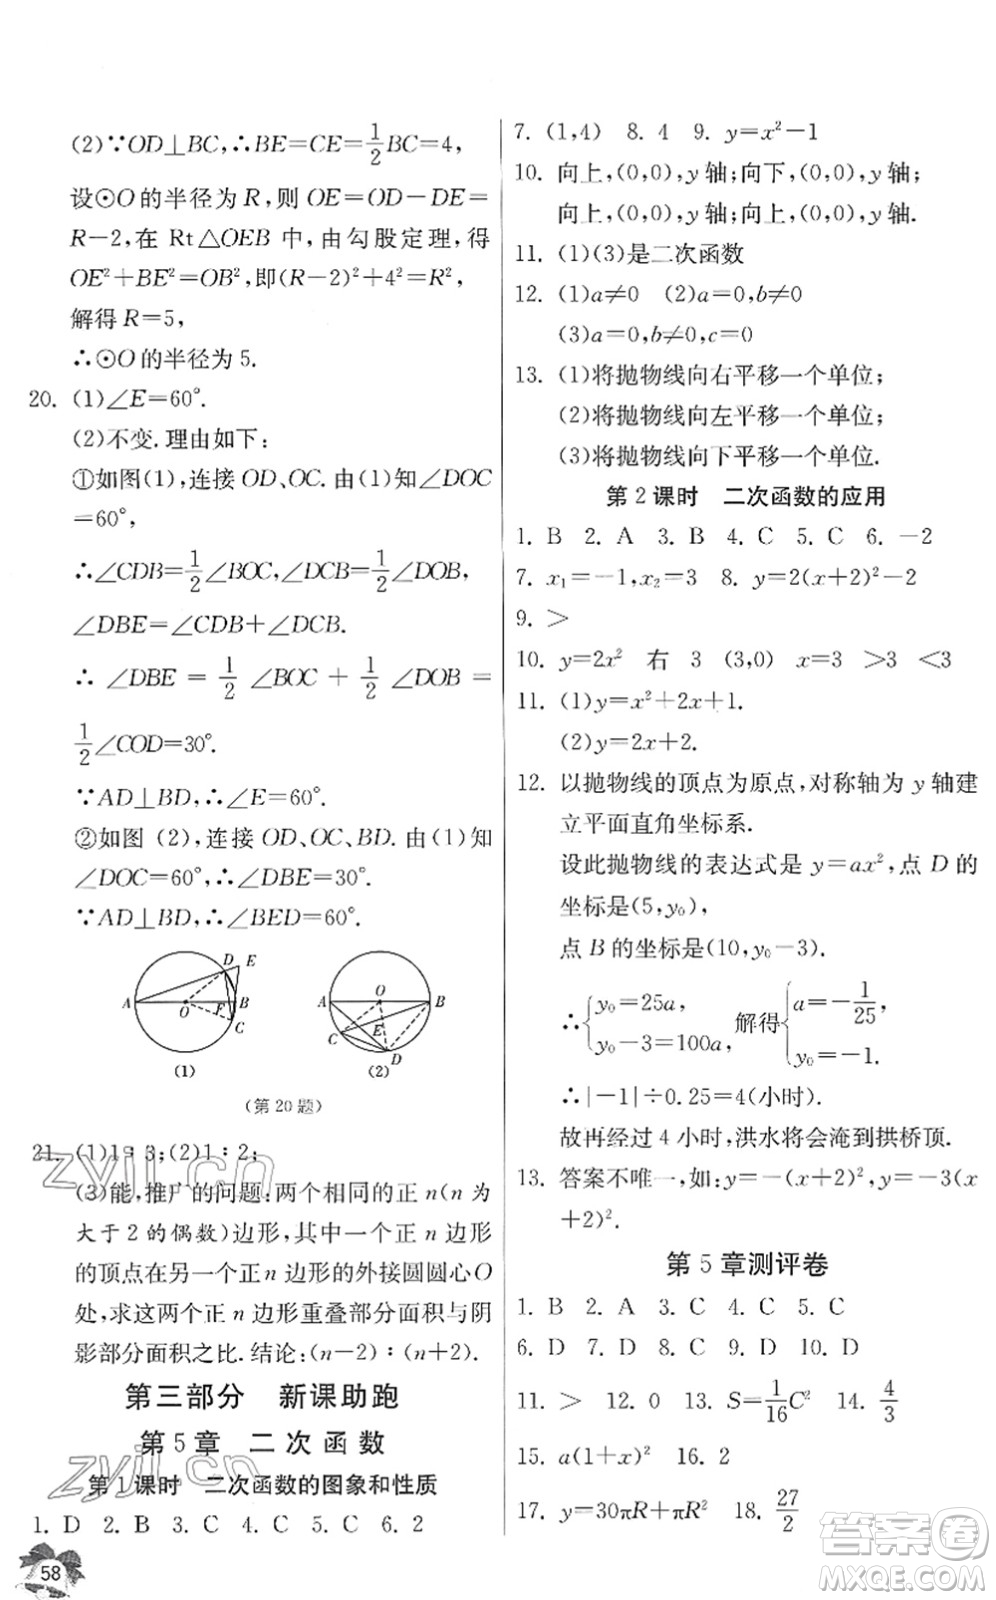 (2)∵OD⊥BC,∴BE=CE=1/2BC=4,
设⊙O的半径为R,则OE=OD-DE=
R-2,在Rt△OEB中,由勾股定理,得
OE²+BE²=OB²,即(R-2)²+4²=R²,
解得R=5,
∴⊙O的半径为5.
20. (1)∠E=60°.
(2)不变.理由如下:
①如图(1),连接OD、OC.由(1)知∠DOC
=60°,
∴∠CDB=1/2∠BOC,∠DCB=1/2∠DOB,
∠DBE=∠CDB+∠DCB.
∴∠DBE=1/2∠BOC+1/2∠DOB=
1/2∠COD=30°.
∵AD⊥BD,∴∠E=60°.
②如图(2),连接OD、OC、BD.由(1)知
∠DOC=60°,∴∠DBE=30°.
∵AD⊥BD,∴∠BED=60°.
A O F B C D E
A O B C E D
(1) (2)
(第20题)
21. (1)1∶3;(2)1∶2;
(3)能,推广的问题:两个相同的正n(n为
大于2的偶数)边形,其中一个正n边形
的顶点在另一个正n边形的外接圆圆心O
处,求这两个正n边形重叠部分面积与阴
影部分面积之比.结论:(n-2)∶(n+2).
第三部分 新课助跑
第5章 二次函数
第1课时 二次函数的图象和性质
1. D 2. B 3. C 4. C 5. C 6. 2
58
7. (1,4) 8. 4 9. y=x²-1
10. 向上,(0,0),y轴;向下,(0,0),y轴;
向上,(0,0),y轴;向上,(0,0),y轴.
11. (1)(3)是二次函数
12. (1)a≠0 (2)a=0,b≠0
(3)a=0,b≠0,c=0
13. (1)将抛物线向右平移一个单位;
(2)将抛物线向左平移一个单位;
(3)将抛物线向下平移一个单位.
第2课时 二次函数的应用
1. B 2. A 3. B 4. C 5. C 6. -2
7. x₁=-1,x₂=3 8. y=2(x+2)²-2
9. >
10. y=2x² 右 3 (3,0) x=3 >3 <3
11. (1)y=x²+2x+1.
(2)y=2x+2.
12. 以抛物线的顶点为原点,对称轴为y轴建
立平面直角坐标系.
设此抛物线的表达式是y=ax²,点D的
坐标是(5,y₀),
点B的坐标是(10,y₀-3).
∴{y₀=25a, y₀-3=100a, 解得{a=-1/25, y₀=-1.
∴|-1|÷0.25=4(小时).
故再经过4小时,洪水将会淹到拱桥顶.
13. 答案不唯一,如:y=-(x+2)²,y=-3(x
+2)².
第5章测评卷
1. B 2. A 3. C 4. C 5. C
6. D 7. D 8. C 9. D 10. A
11. > 12. 0 13. S=1/16C² 14. 4/3
15. a(1+x)² 16. 2
17. y=30πR+πR² 18. 27/2
zyjl.cn
zyjl.cn
答案圈
MXQE.COM